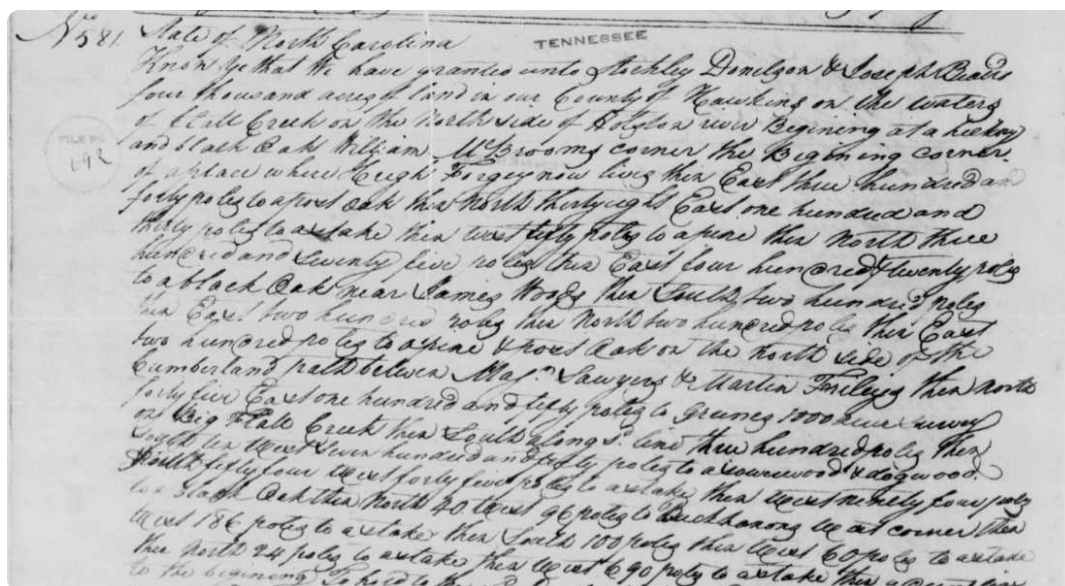 No 581. State of North Carolina
TENNESSEE
Know ye that We have granted unto Stockley Donelson & Joseph Beard
four thousand acres of land in our County of Hawkins on the waters
of Flatt Creek on the North side of Holston river Begining at a hickory
FILE NO
192
and black Oak William McBrooms corner the Begining corner
of a place where Hugh Forgey now lives then East three hundred an
forty poles to a post Oak then North thirty eight East one hundred and
thirty poles to a stake then west fifty poles to a pine then North three
hundred and seventy five poles then East four hundred & twenty poles
to a black Oak near James Woods then South two hundred poles
then East two hundred poles then North two hundred poles then East
two hundred poles to a pine & post Oak on the north side of the
Cumberland path between Majr. Sawyers & Martin then North
forty five East one hundred and fifty poles to 1000 acre survey
on Big Flatt Creek then South along sd. line three hundred poles then
South ten West seven hundred and fifty poles to a sourwood & dogwood
South fifty four West forty five poles to a stake then West ninety four poles
to a black Oak then North 40 West 96 poles to corner then
West 186 poles to a stake then South 100 poles then West 60 poles to a stake
then North 24 poles to a stake then West 690 poles to a stake then
to the begining To hold to the